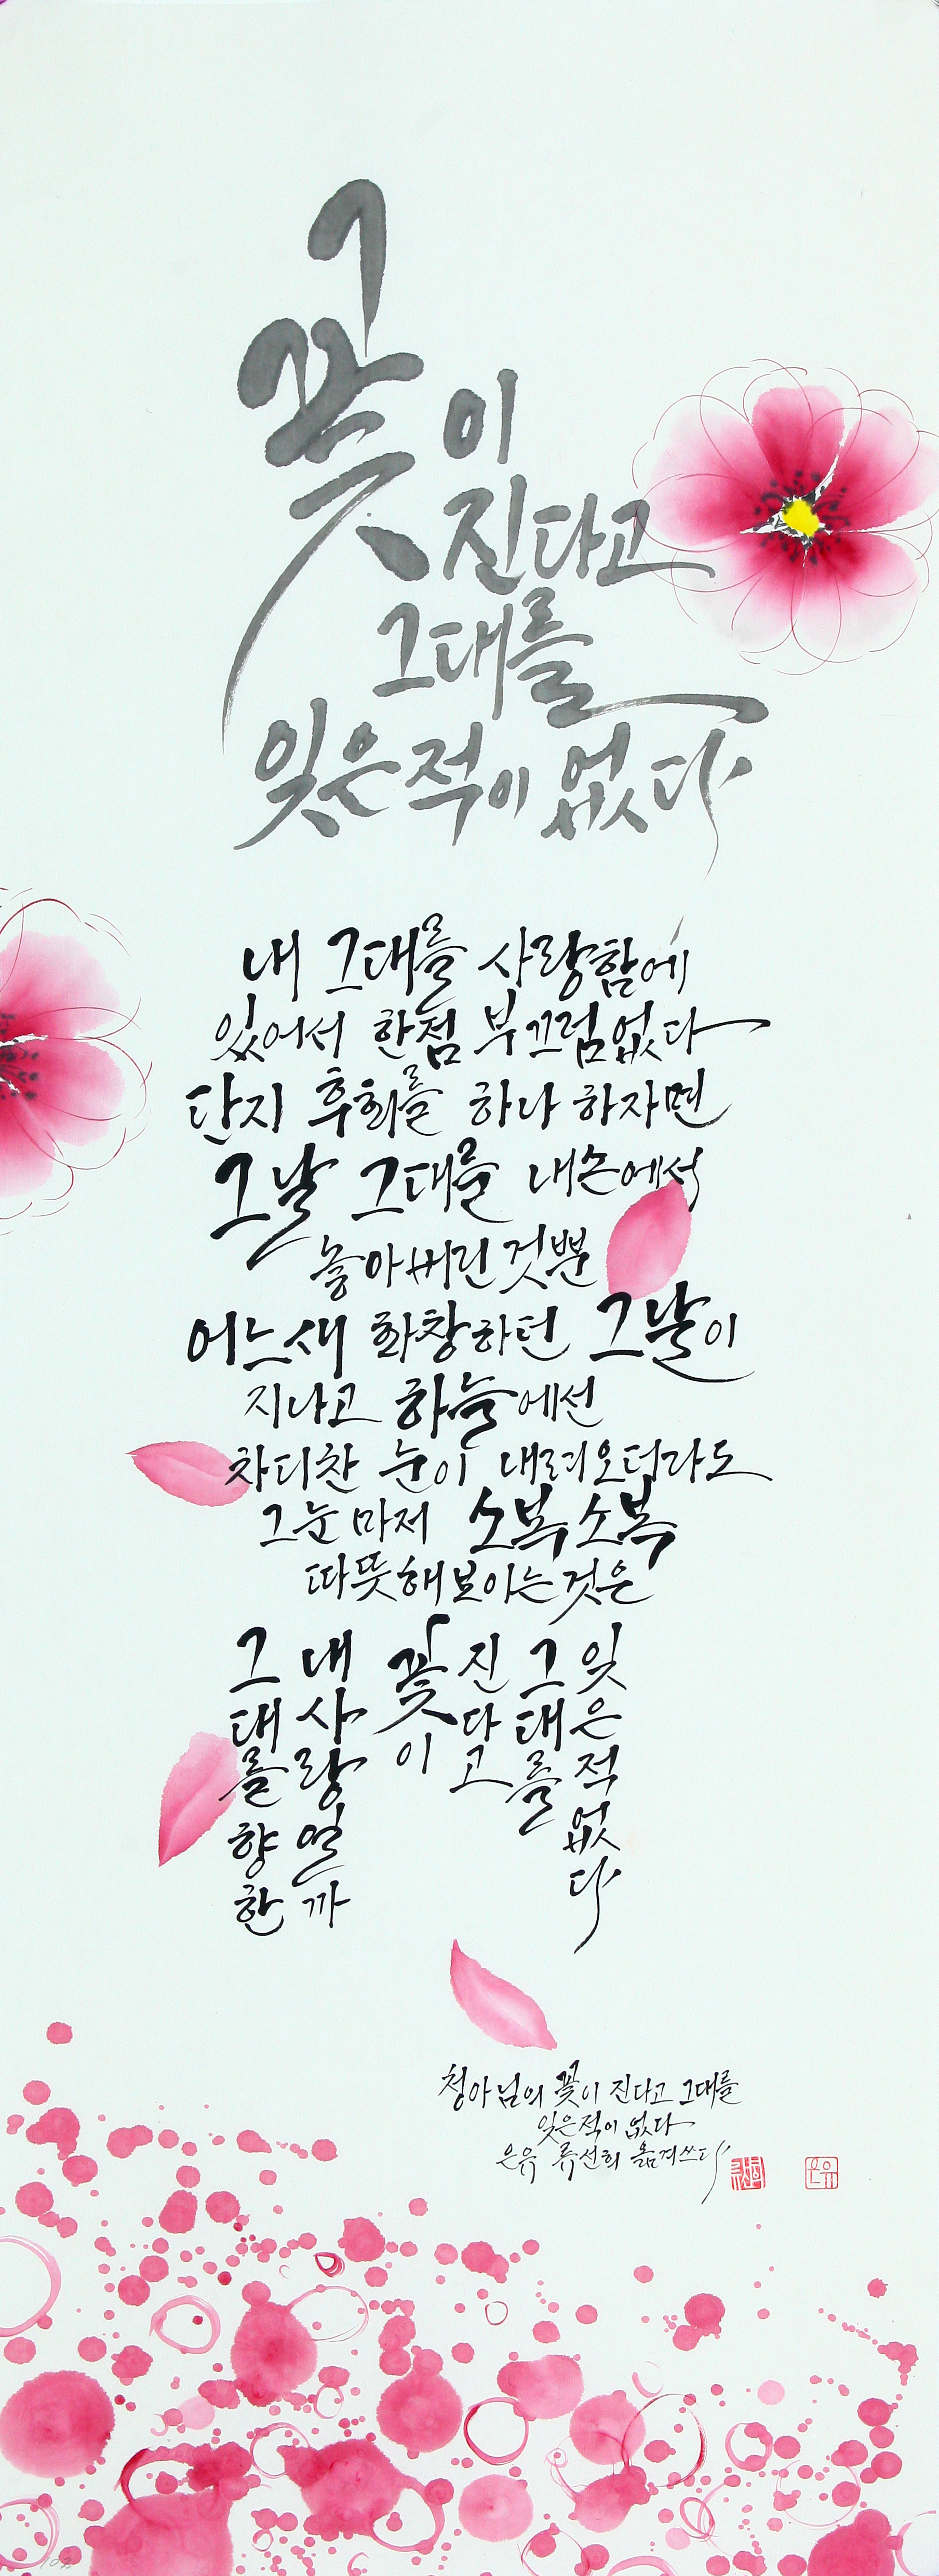 꽃이
진다고
그대를
잊은적이 없다
내 그대를 사랑함에
있어서 한점 부끄럼없다
단지 후회를 하나 하자면
그날 그대를 내손에서
놓아버린것뿐
어느새 화창하던 그날이
지나고 하늘에선
차디찬 눈이 내려오더라도
그눈마저 소복소복
따뜻해보이는것은
그대를향한
내사랑일까
꽃이
진다고
그대를
잊은적없다
청아님의 꽃이 진다고 그대를
잊은적이 없다
은유 류선희 옮겨쓰다
은유